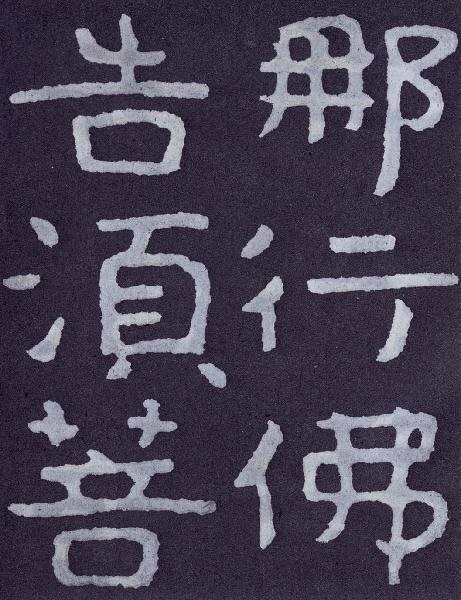 那行佛
告須菩